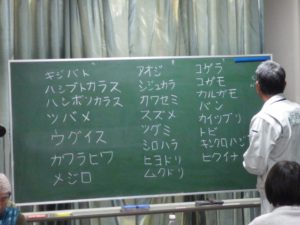 キジバト
ハシブトカラス
ハシボソカラス
ツバメ
ウグイス
カワラヒワ
メジロ
アオジ
シジュカラ
カワセミ
スズメ
ツグミ
シロハラ
ヒヨドリ
ムクドリ
コゲラ
コガモ
カルガモ
バン
カイツブリ
トビ
キンクロハジ
ヒクイナ